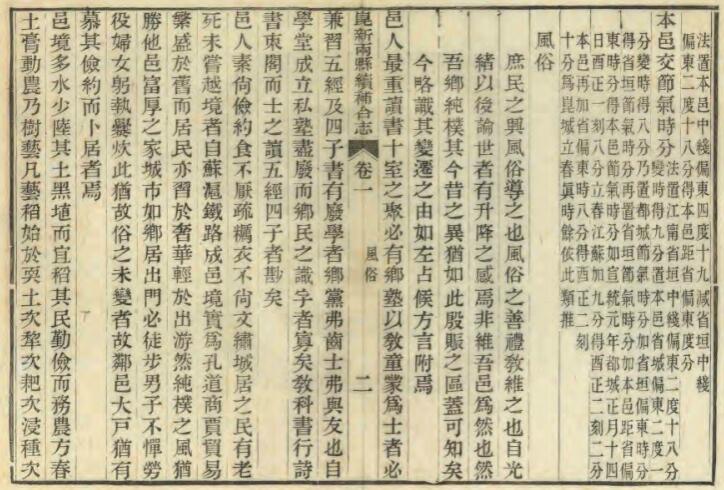 法置本邑中綫偏東四度十九減省垣中綫
偏東二度十八分得本邑距省偏東度分
本邑交節氣時分法置江南省垣中綫偏東二度十八分
變時得九分置本邑省城偏東二度一
分變時得八分乃置都城節氣時分加省垣偏東時分
得省垣節氣時分再置省垣節氣時分加本邑距省偏
東時分得本邑節氣時分如宣統元年都城正月十四
日酉正一刻八分立春江蘇加九分得酉正二刻二分
本邑再加省城偏東時八分得酉正二刻
十分為崑城立春真時餘依此類推
風俗
庶民之興風俗導之也風俗之善禮教維之也自光
緒以後論世者有升降之感焉非維吾邑為然也然
吾鄉純樸其今昔之異猶如此殷賑之區蓋可知矣
今略識其變遷之由如左占候方言附焉
崑新兩縣續補合志 卷一 風俗 二
邑人最重讀書十室之聚必有鄉塾以教童蒙為士者必
兼習五經及四子書有廢學者鄉黨弗齒士弗與友也自
學堂成立私塾盡廢而鄉民之識字者寡矣教科書行詩
書束閣而士之讀五經四子者尠矣
邑人素尚儉約食不厭疏糲衣不尚文繡城居之民有老
死未嘗越境者自蘇滬鐵路成邑境實為孔道商賈貿易
繁盛於舊而居民亦習於奢華輕於出游然純樸之風猶
勝他邑富厚之家城市如鄉居出門必徒步男子不憚勞
役婦女躬執爨炊此猶故俗之未變者故鄰邑大戶猶有
慕其儉約而卜居者焉
邑境多水少陸其土黑埴而宜稻其民勤儉而務農方春
土膏動農乃樹藝凡藝稻始於耎土次犂次耙次浸種次